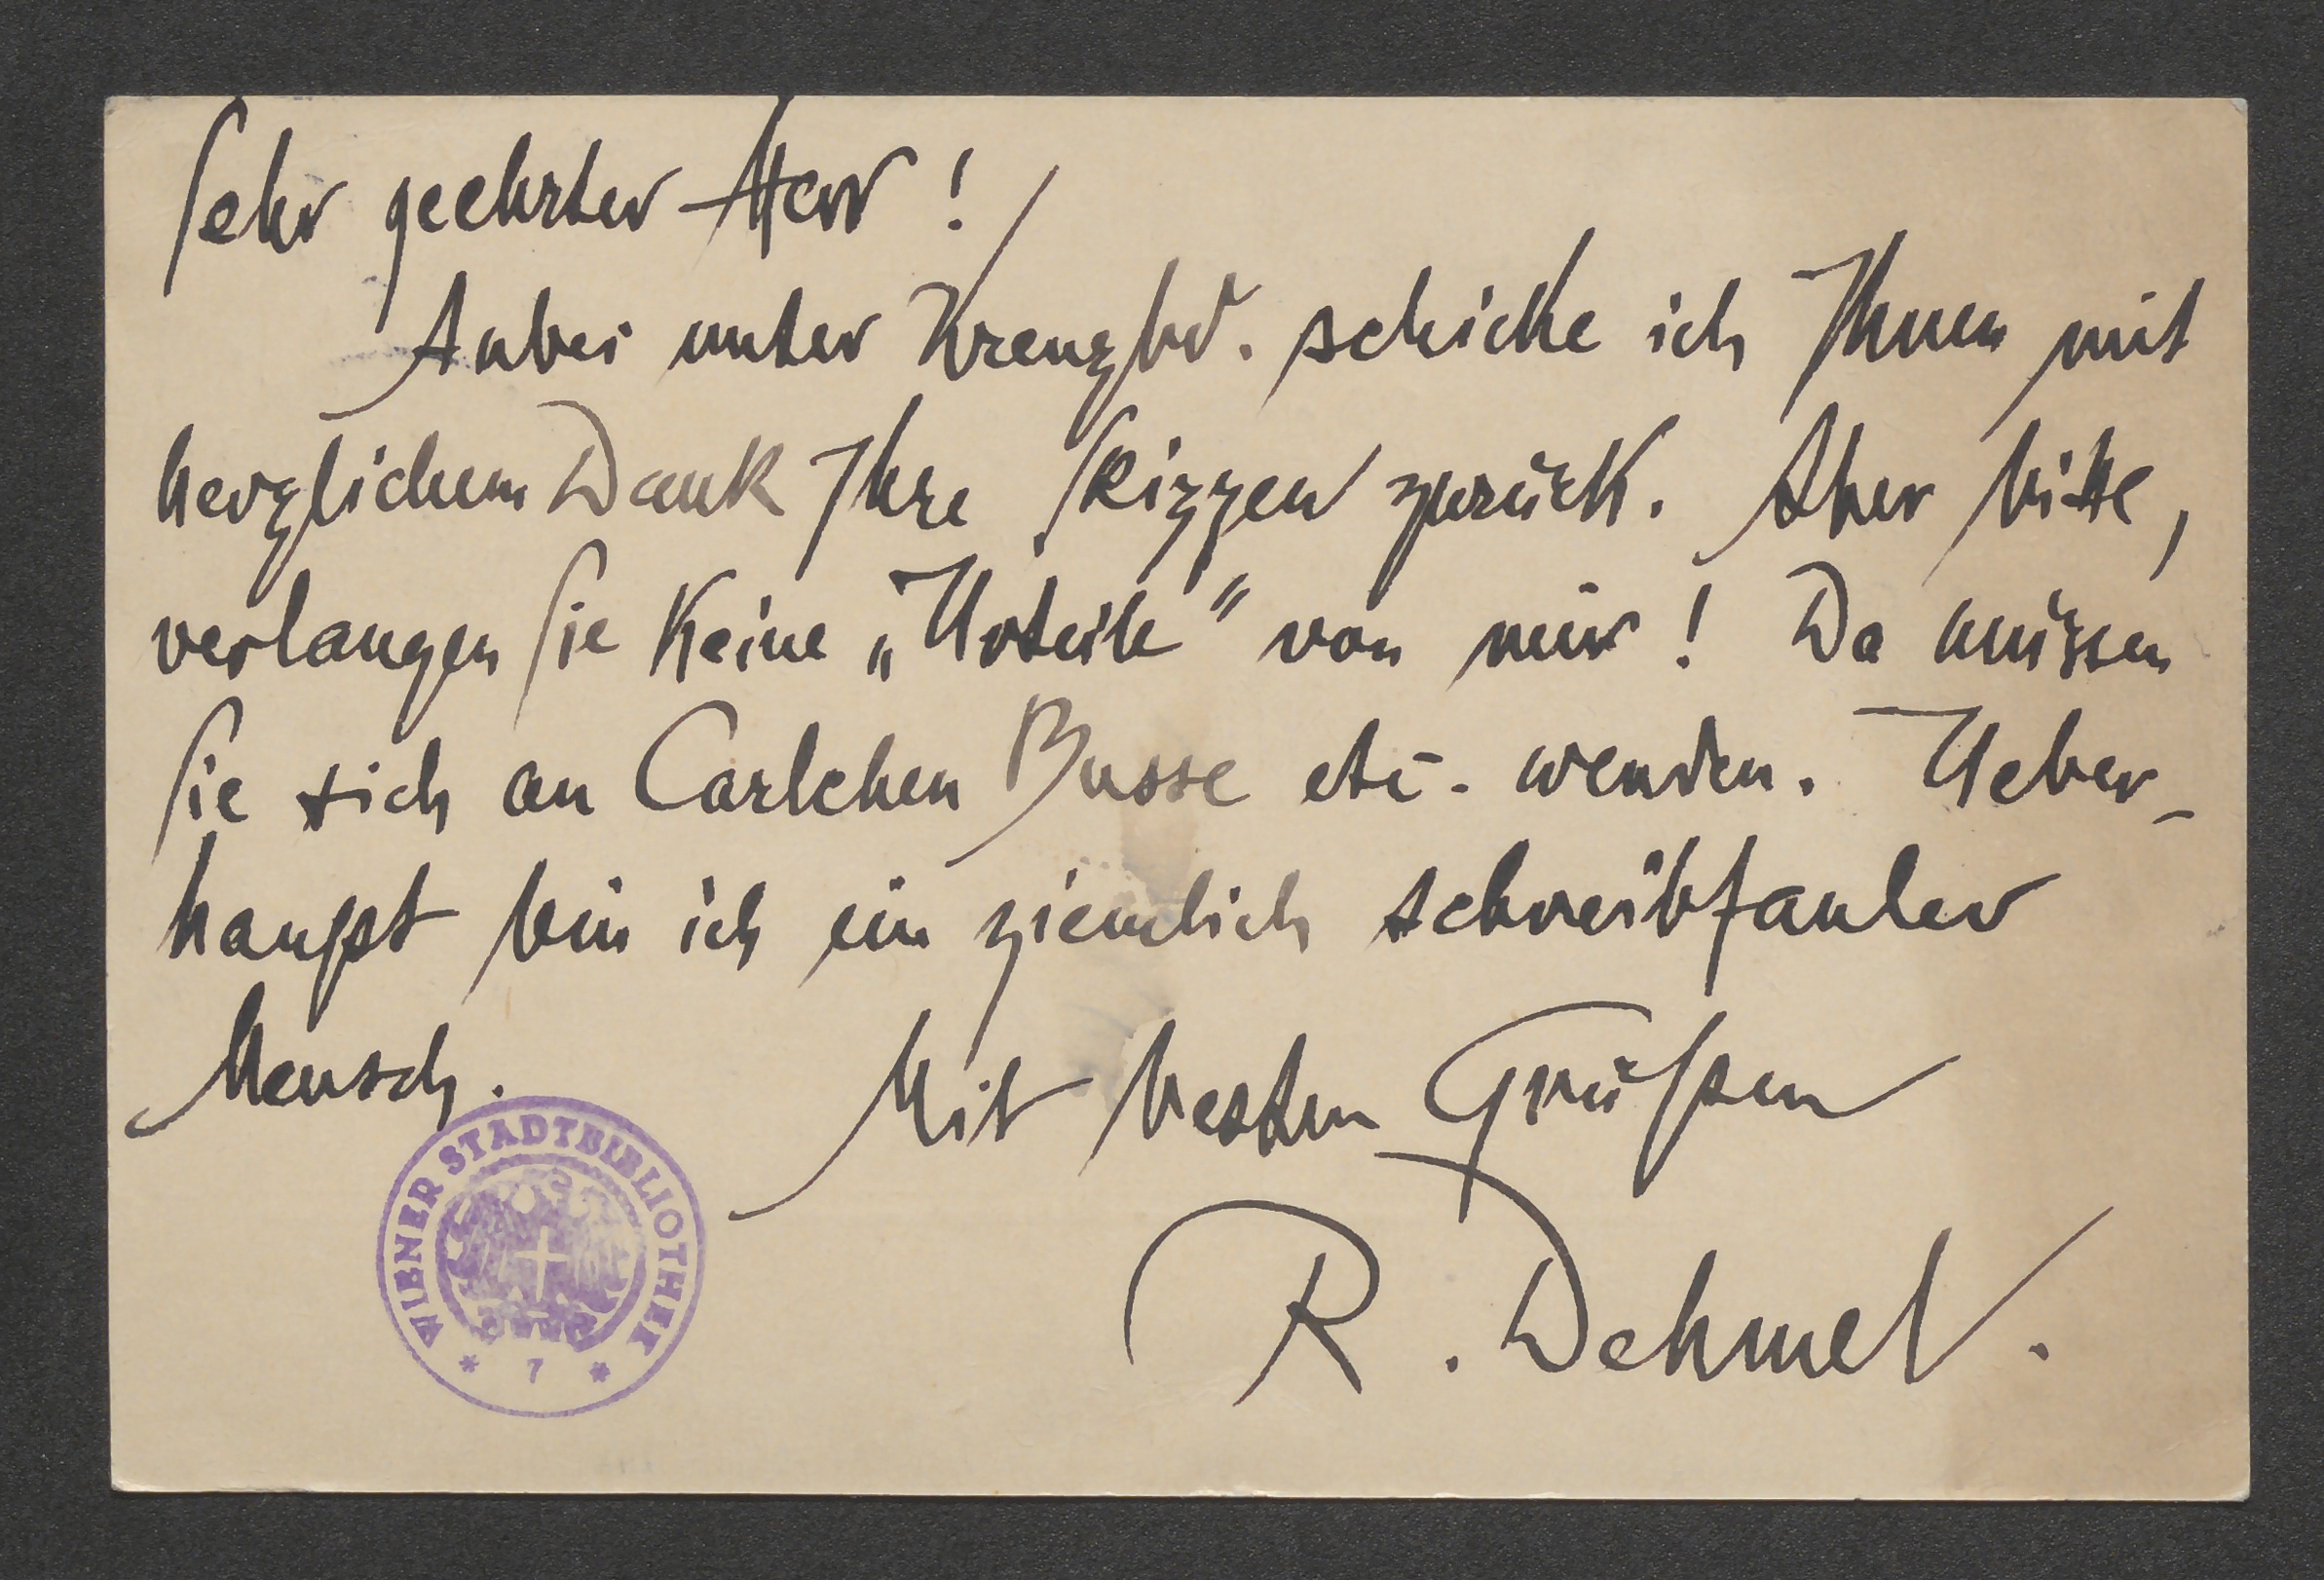 Sehr geehrter Herr!
Anbei unter Kreuzbd. schicke ich Ihnen mit
herzlichem Dank Ihre Skizzen zurück. Aber bitte,
verlangen Sie keine „Urteile" von mir! Da müssen
Sie sich an Carlchen Busse etc. wenden. Ueber-
haupt bin ich ein ziemlich schreibfauler
Mensch.
Mit besten Grüßen
R. Dehmel.
WIENER STADTBIBLIOTHEK
* 7 *